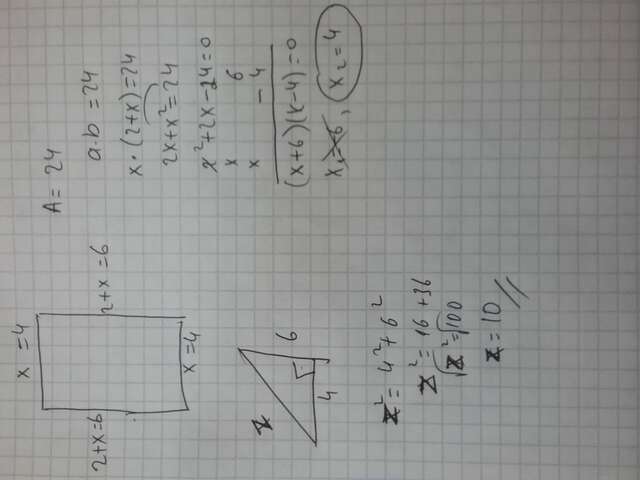 x = 4
2+x=6
2+x = 6
x = 4
A = 24
a·b = 24
x·(2+x) = 24
2x+x² = 24
x²+2x-24=0
x 6
x -4
(x+6)(x-4)=0
x₁=-6, x₂=4
z
6
4
z² = 4²+6²
z² = 16+36
√z²=√100
z = 10